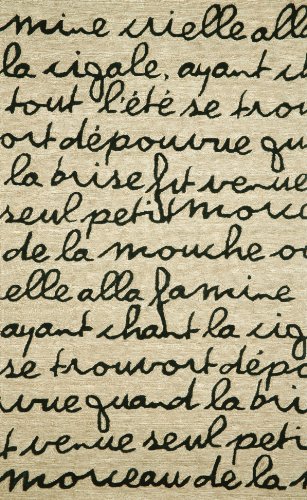 mine crielle alla
la cigale, ayant ch
tout l'été se trou
ort dépouvue qu
la brise fut venue
seul petit morce
de la mouche ou
elle alla famine
ayant chant la cig
se trouvort dépo
vue quand la bri
t venue seul peti
morceau de la m